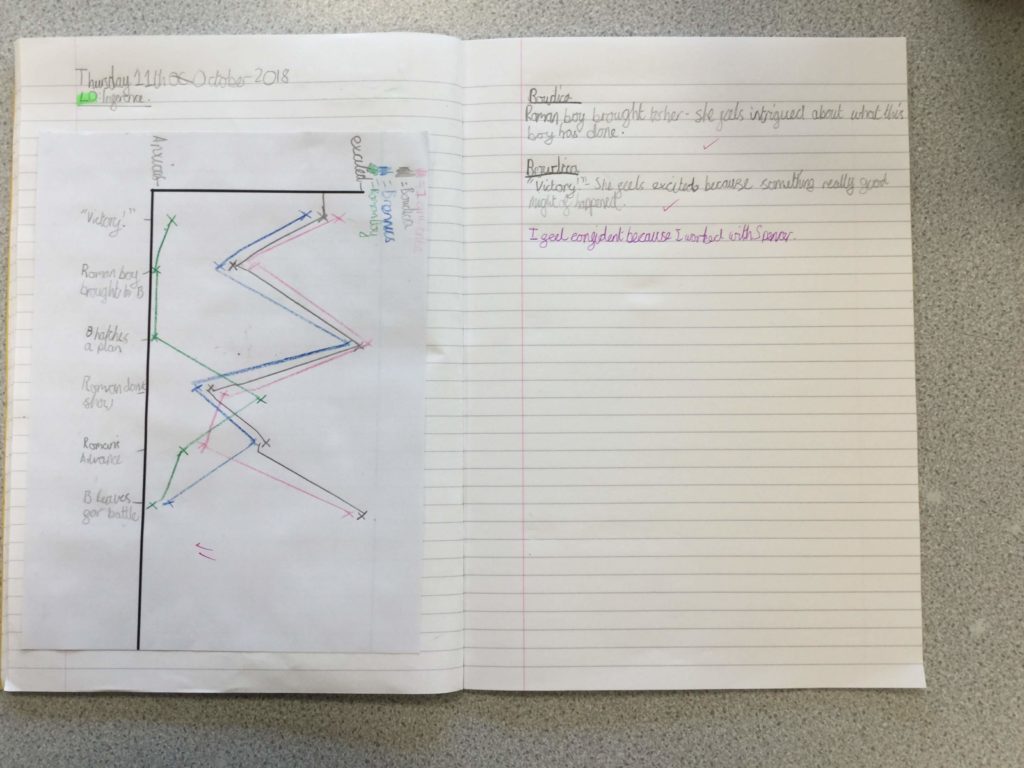 Thursday 11th October 2018
LO Inference.
Anxious
excited
= Boudica
"Victory!"
Roman boy
brought to B
B hatches
a plan
show
Romans
Advance
B leaves
for battle
Boudica
Roman boy brought to her - she feels intrigued about what this
boy has done.
Boudica
"Victory!" - She feels excited because something really good
might of happened.
I feel confident because I worked with Spencer.